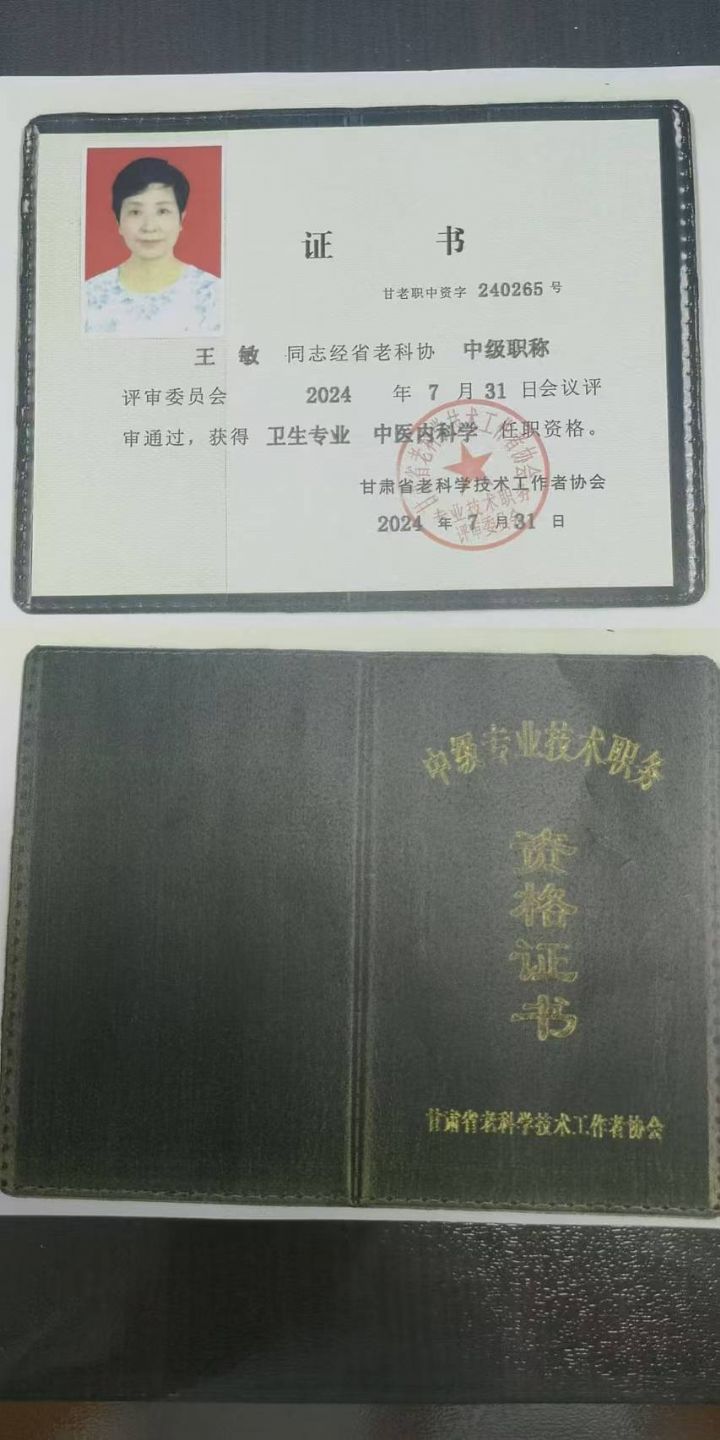 证 书
甘老职中资字 240265 号
王 敏 同志经省老科协 中级职称
评审委员会 2024 年 7 月 31 日会议评
审通过，获得 卫生专业 中医内科学 任职资格。
甘肃省老科学技术工作者协会
2024 年 7 月 31 日
甘肃省老科学技术工作者协会
专业技术职务
评审委员会
中级专业技术职务
资格证书
甘肃省老科学技术工作者协会